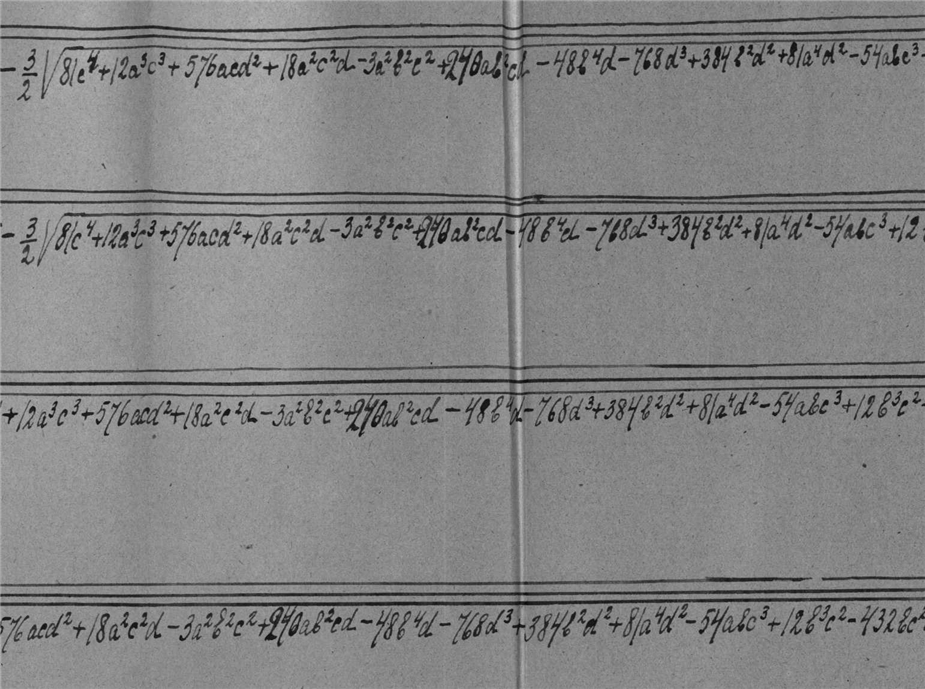 - 3/2 √81c⁴+12a³c³+576acd²+18a²c²d-3a²b²c²+240ab²cd-48b⁴d-768d³+384b²d²+81a⁴d²-54abc³-
- 3/2 √81c⁴+12a³c³+576acd²+18a²c²d-3a²b²c²+240ab²cd-48b⁴d-768d³+384b²d²+81a⁴d²-54abc³+12
+12a³c³+576acd²+18a²c²d-3a²b²c²+240ab²cd-48b⁴d-768d³+384b²d²+81a⁴d²-54abc³+12b³c²-
576acd²+18a²c²d-3a²b²c²+240ab²cd-48b⁴d-768d³+384b²d²+81a⁴d²-54abc³+12b³c²-432bc²